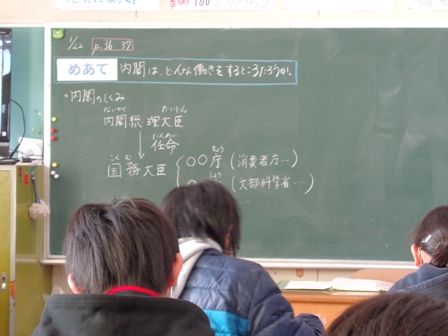 1/22 p.36 37
めあて 内閣は、どんな働きをするところだろうか。
・内閣のしくみ
ないかく だいじん
内閣総理大臣
にんめい
任命
こくむ ちょう
国務大臣 〇〇庁(消費者庁…)
しょう
(文部科学省…)